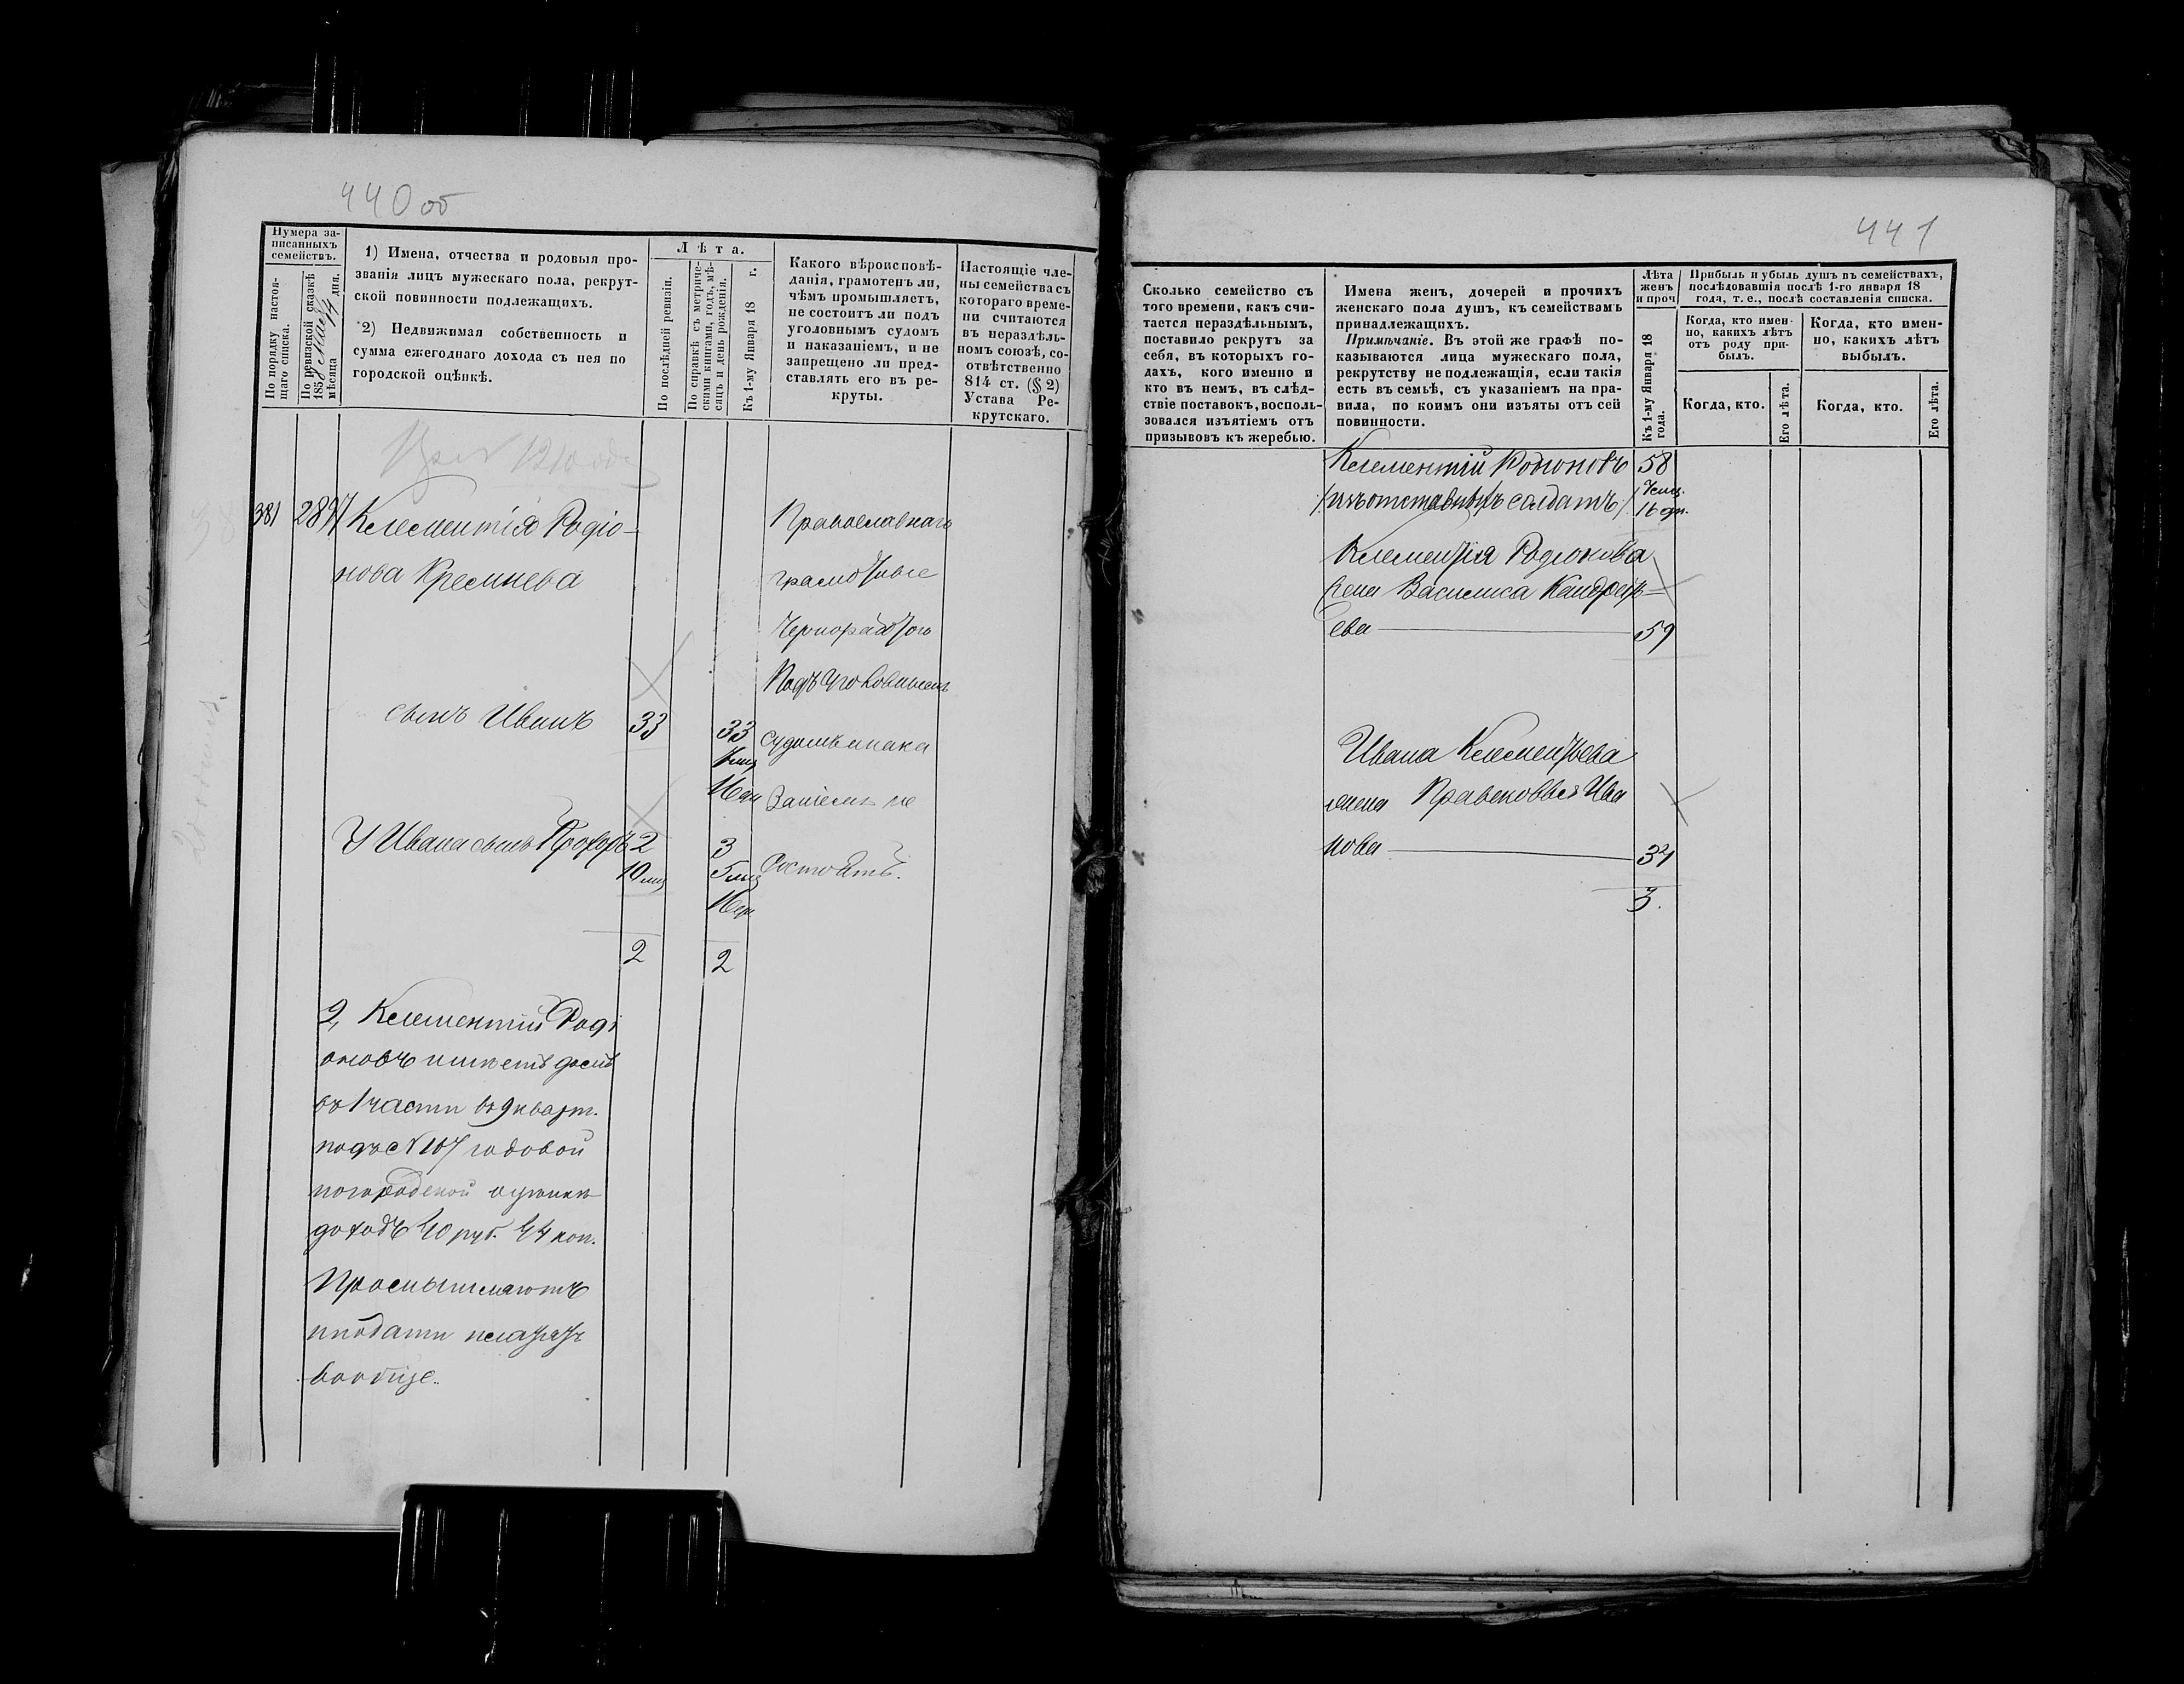 440 об
Нумера за-
писанныхъ
семействъ.
По порядку настоя-
щаго списка.
По ревизской сказкѣ
1858 Мая
мѣсяца 14 дня.
1) Имена, отчества и родовыя про-
званія лицъ мужескаго пола, рекрут-
ской повинности подлежащихъ.
2) Недвижимая собственность и
сумма ежегоднаго дохода съ нея по
городской оцѣнкѣ.
Лѣта.
По послѣдней ревизіи.
По справкѣ съ метриче-
скими книгами, годъ, мѣ-
сяцъ и день рожденія.
Къ 1-му Января 18 г.
Какого вѣроисповѣ-
данія, грамотенъ ли,
чѣмъ промышляетъ,
не состоитъ ли подъ
уголовнымъ судомъ
и наказаніемъ, и не
запрещено ли пред-
ставлять его въ ре-
круты.
Настоящіе чле-
ны семейства съ
котораго време-
ни считаются
въ нераздѣль-
номъ союзѣ, со-
отвѣтственно
814 ст. (§ 2)
Устава Ре-
крутскаго.
381 2897 Клементія Родіо-
нова Кремнева
сынъ Иванъ 33 33
16 дн
У Ивана сынъ Прохоръ 2 3
10 мц 5 мц
16 дн
2 2
Православнаго
грамотные
Черноработ.
Подъ уголовнымъ
судомъ и нака
заніемъ не
состоятъ.
2, Клементий Роді
оновъ имѣетъ домъ
въ 1 части въ 9 кварт.
подъ N 107 годовой
по городской оцѣнкѣ
доходъ 40 руб. 44 коп.
Промышляютъ
и подати платятъ
вообще.
441
Сколько семейство съ
того времени, какъ счи-
тается нераздѣльнымъ,
поставило рекрутъ за
себя, въ которыхъ го-
дахъ, кого именно и
кто въ немъ, въ слѣд-
ствіе поставокъ, восполь-
зовался изъятіемъ отъ
призывовъ къ жеребью.
Имена женъ, дочерей и прочихъ
женскаго пола душъ, къ семействамъ
принадлежащихъ.
Примѣчаніе. Въ этой же графѣ по-
казываются лица мужескаго пола,
рекрутству не подлежащія, если такія
есть въ семьѣ, съ указаніемъ на пра-
вила, по коимъ они изъяты отъ сей
повинности.
Лѣта
женъ
и проч
Къ 1-му Января 18
года.
Прибыль и убыль душъ въ семействахъ,
послѣдовавшія послѣ 1-го января 18
года, т. е., послѣ составленія списка.
Когда, кто имен-
но, какихъ лѣтъ
отъ роду при-
былъ.
Когда, кто имен-
но, какихъ лѣтъ
выбылъ.
Когда, кто.
Его лѣта.
Когда, кто.
Его лѣта.
Клементій Родионовъ 58
/изъ отставныхъ солдатъ/ 16 дн.
Клементія Родионова
жена Василиса Кандрать=
ева 59
Ивана Клементьева
жена Прасковья Ива
нова 34
3.